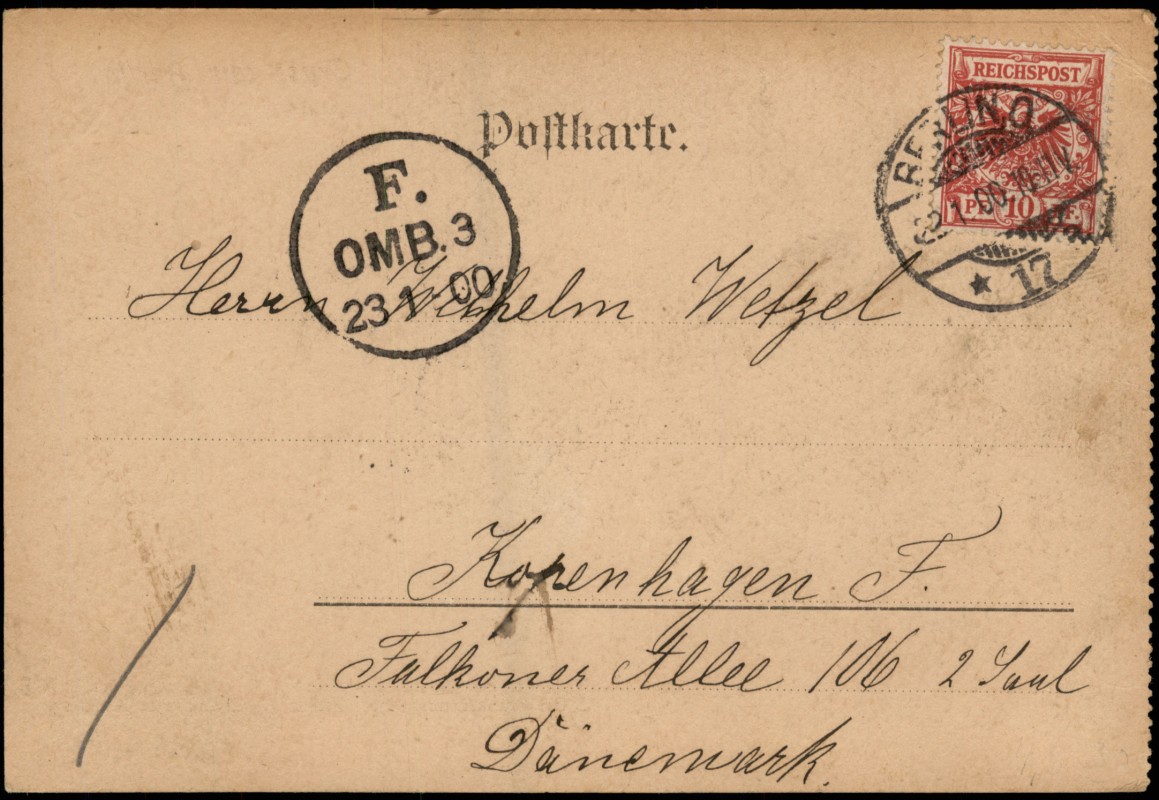 REICHSPOST
PF. 10 PF.
BERLIN O
1.00.10-11V.
* 17
Postkarte.
F.
OMB. 3
23 1 00
Herrn Wilhelm Wetzel
Kopenhagen F.
Falkoner Allee 106 2 Saal
Dänemark.